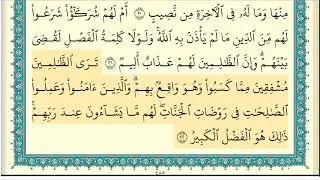 مِنْهَا وَمَا لَهُۥ فِى ٱلْـَٔاخِرَةِ مِن نَّصِيبٍ ٢٠ أَمْ لَهُمْ شُرَكَٰٓؤُا۟ شَرَعُوا۟
لَهُم مِّنَ ٱلدِّينِ مَا لَمْ يَأْذَنۢ بِهِ ٱللَّهُ ۚ وَلَوْلَا كَلِمَةُ ٱلْفَصْلِ لَقُضِىَ
بَيْنَهُمْ ۗ وَإِنَّ ٱلظَّٰلِمِينَ لَهُمْ عَذَابٌ أَلِيمٌ ٢١ تَرَى ٱلظَّٰلِمِينَ
مُشْفِقِينَ مِمَّا كَسَبُوا۟ وَهُوَ وَاقِعٌۢ بِهِمْ ۗ وَٱلَّذِينَ ءَامَنُوا۟ وَعَمِلُوا۟
ٱلصَّٰلِحَٰتِ فِى رَوْضَاتِ ٱلْجَنَّاتِ ۖ لَهُم مَّا يَشَآءُونَ عِندَ رَبِّهِمْ ۚ
ذَٰلِكَ هُوَ ٱلْفَضْلُ ٱلْكَبِيرُ ٢٢
٤٨٥